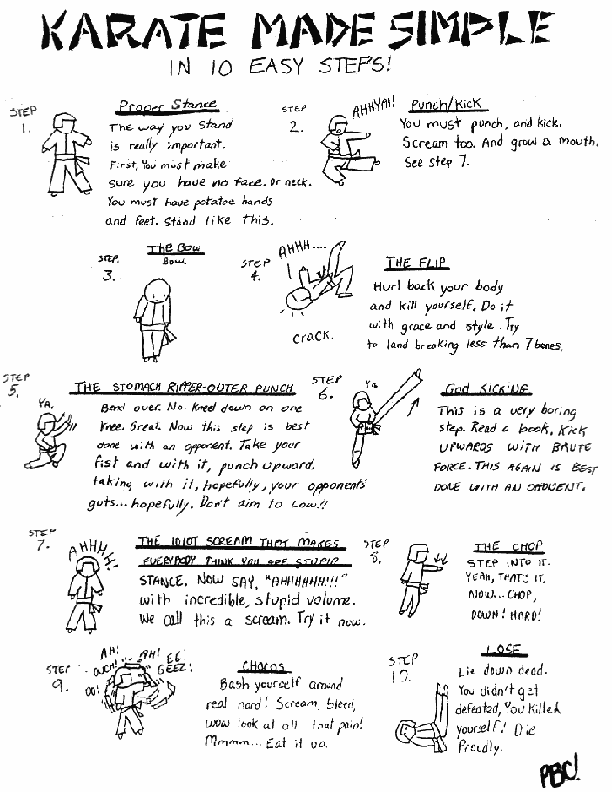 KARATE MADE SIMPLE
IN 10 EASY STEPS!
STEP
1.
Proper Stance
The way you stand
is really important.
First, You must make
sure you have no face. Or neck.
You must have potatoe hands
and feet. Stand like this.
STEP
2.
AHHYAH!
Punch/Kick
You must punch, and kick.
Scream too. And grow a mouth.
See step 7.
STEP
3.
The Bow
Bow.
STEP
4.
AHHH....
crack.
THE FLIP
Hurl back your body
and kill yourself. Do it
with grace and style. Try
to land breaking less than 7 bones.
STEP
5.
YA.
THE STOMACH RIPPER-OUTER PUNCH
Bend over. No. Kneel down on one
knee. Great. Now this step is best
done with an opponent. Take your
fist and with it, punch upward.
taking with it, hopefully, your opponents
guts...hopefully. Don't aim to low!!
STEP
6.
Ya.
This is a very boring
step. Read a book. Kick
UPWARDS WITH BRUTE
FORCE. THIS AGAIN IS BEST
DONE WITH AN OPPONENT.
STEP
7.
AHHHH!
THE IDIOT SCREAM THAT MAKES
EVERYBODY THINK YOU ARE STUPID
STANCE. NOW SAY, "AHHHHHH!!!"
with incredible, stupid volume.
We call this a scream. Try it now.
STEP
8.
THE CHOP
STEP INTO IT.
YEAH, THATS IT.
NOW... CHOP,
DOWN! HARD!
STEP
9.
AH! AH! EE
OUCH! GEEZ!
OO!
CHACOS
Bash yourself around
real hard! Scream, bleed,
wow look at all that pain!
Mmmm... Eat it up.
STEP
10.
LOSE
Lie down dead.
You didn't get
defeated, You killed
yourself! Die
Proudly.
PBC!